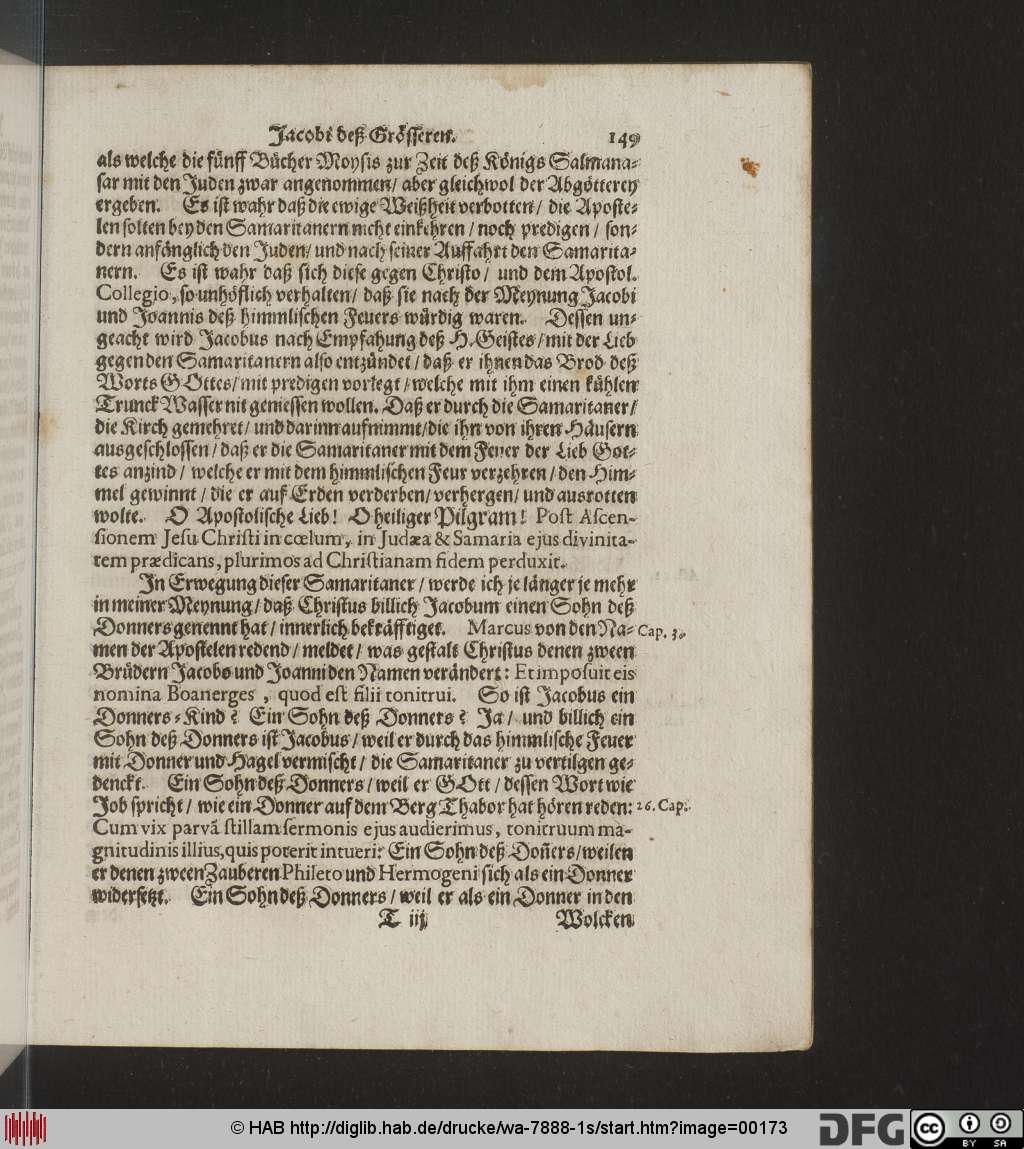 Jacobi deß Grösseren. 149
als welche die fünff Bücher Moysis zur Zeit deß Königs Salmana-
sar mit den Juden zwar angenommen/ aber gleichwol der Abgötterey
ergeben. Es ist wahr daß die ewige Weißheit verbotten/ die Aposte-
len solten bey den Samaritanern nicht einkehren/ noch predigen/ son-
dern anfänglich den Juden/ und nach seiner Auffahrt den Samarita-
nern. Es ist wahr daß sich diese gegen Christo/ und dem Apostol.
Collegio, so unhöflich verhalten/ daß sie nach der Meynung Jacobi
und Joannis deß himmlischen Feuers würdig waren. Dessen un-
geacht wird Jacobus nach Empfahung deß H. Geistes/ mit der Lieb
gegen den Samaritanern also entzündet/ daß er ihnen das Brod deß
Worts GOttes/ mit predigen vorlegt/ welche mit ihm einen kühlen
Trunck Wasser nit geniessen wollen. Daß er durch die Samaritaner/
die Kirch gemehret/ und darinn auffnimmt/ die ihn von ihren Häusern
ausgeschlossen/ daß er die Samaritaner mit dem Feuer der Lieb Got-
tes anzind/ welche er mit dem himmlischen Feur verzehren/ den Him-
mel gewinnt/ die er auf Erden verderben/ verhergen/ und ausrotten
wolte. O Apostolische Lieb! O heiliger Pilgram! Post Ascen-
sionem Jesu Christi in cœlum, in Judæa & Samaria ejus divinita-
tem prædicans, plurimos ad Christianam fidem perduxit.
In Erwegung dieser Samaritaner/ werde ich je länger je mehr
in meiner Meynung/ daß Christus billich Jacobum einen Sohn deß
Donners genennt hat/ innerlich bekräfftiget. Marcus von den Na- Cap. 3.
men der Apostelen redend/ meldet/ was gestalt Christus denen zween
Brüdern Jacobs und Joanni den Namen verändert: Et imposuit eis
nomina Boanerges, quod est filii tonitrui. So ist Jacobus ein
Donners-Kind? Ein Sohn deß Donners? Ja/ und billich ein
Sohn deß Donners ist Jacobus/ weil er durch das himmlische Feuer
mit Donner und Hagel vermischt/ die Samaritaner zu vertilgen ge-
denckt. Ein Sohn deß Donners/ weil er GOtt/ dessen Wort wie
Job spricht/ wie ein Donner auf dem Berg Thabor hat hören reden: 26. Cap.
Cum vix parvã stillam sermonis ejus audierimus, tonitruum ma-
gnitudinis illius, quis poterit intueri? Ein Sohn deß Doñers/ weilen
er denen zween Zauberen Phileto und Hermogeni sich als ein Donner
widersetzt. Ein Sohn deß Donners/ weil er als ein Donner in den
T iij Wolcken
© HAB http://diglib.hab.de/drucke/wa-7888-1s/start.htm?image=00173
DFG
cc BY SA